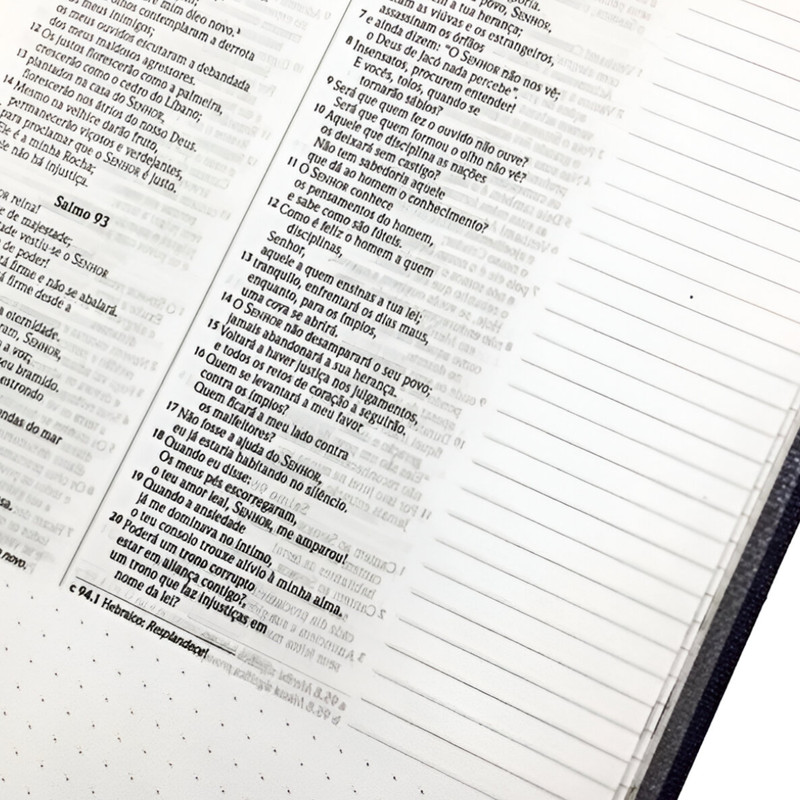 mim óleo novo.ᵃ
olhos contemplaram a derrota
os meus inimigos;
os meus ouvidos escutaram a debandada
dos meus maldosos agressores.
12 Os justos florescerão como a palmeira,
crescerão como o cedro do Líbano;
13 plantados na casa do SENHOR,
florescerão nos átrios do nosso Deus.
14 Mesmo na velhice darão fruto,
permanecerão viçosos e verdejantes,
para proclamar que o SENHOR é justo.
Ele é a minha Rocha;
ele não há injustiça.
Salmo 93
reina!
de majestade;
vestiu-se o SENHOR
de poder!
firme e não se abalará.
firme desde a
a eternidade.
SENHOR,
a voz;
seu bramido.
estrondo
ondas do mar
novo.
povo, SENHOR,
a tua herança;
7 as viúvas e os estrangeiros,
assassinam os órfãos
e ainda dizem: "O SENHOR não nos vê;
o Deus de Jacó nada percebe".
8 Insensatos, procurem entender!
E vocês, tolos, quando se
tornarão sábios?
9 Será que quem fez o ouvido não ouve?
Será que quem formou o olho não vê?
10 Aquele que disciplina as nações
os deixará sem castigo?
Não tem sabedoria aquele
que dá ao homem o conhecimento?
11 O SENHOR conhece
os pensamentos do homem,
e sabe como são fúteis.
12 Como é feliz o homem a quem
disciplinas,
Senhor,
aquele a quem ensinas a tua lei;
13 tranquilo, enfrentará os dias maus,
enquanto, para os ímpios,
uma cova se abrirá.
14 O SENHOR não desamparará o seu povo;
jamais abandonará a sua herança.
15 Voltará a haver justiça nos julgamentos,
e todos os retos de coração a seguirão.
16 Quem se levantará a meu favor
contra os ímpios?
Quem ficará a meu lado contra
os malfeitores?
17 Não fosse a ajuda do SENHOR,
eu já estaria habitando no silêncio.
18 Quando eu disse:
Os meus pés escorregaram,
o teu amor leal, SENHOR, me amparou!
19 Quando a ansiedade
já me dominava no íntimo,
o teu consolo trouxe alívio à minha alma.
20 Poderá um trono corrupto
estar em aliança contigo?,
um trono que faz injustiças em
nome da lei?
c 94.1 Hebraico: Resplandece!